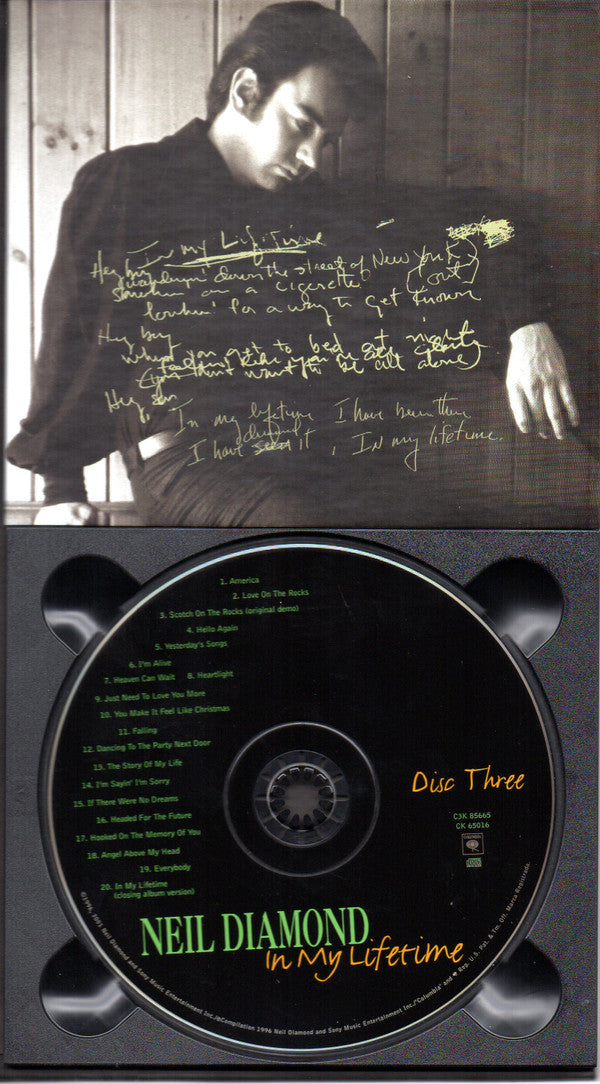 In my Lifetime
Hey boy
wanderin' down the street of New York
smokin on a cigarette (out)
lookin' for a way to get known
Hey boy
when you get to bed at night
talkin' like you
(you don't want to be all alone)
Hey son
In my lifetime I have been there
I have seen it, In my lifetime.
1. America
2. Love On The Rocks
3. Scotch On The Rocks (original demo)
4. Hello Again
5. Yesterday's Songs
6. I'm Alive
7. Heaven Can Wait 8. Heartlight
9. Just Need To Love You More
10. You Make It Feel Like Christmas
11. Falling
12. Dancing To The Party Next Door
13. The Story Of My Life
14. I'm Sayin' I'm Sorry
15. If There Were No Dreams
16. Headed For The Future
17. Hooked On The Memory Of You
18. Angel Above My Head
19. Everybody
20. In My Lifetime
(closing album version)
Disc Three
C3K 85665
CK 65016
COLUMBIA
NEIL DIAMOND
In My Lifetime
Neil Diamond and Sony Music Entertainment Inc./℗Compilation 1996 Neil Diamond and Sony Music Entertainment Inc./"Columbia" and Reg. U.S. Pat. & Tm. Off. Marca Registrada.